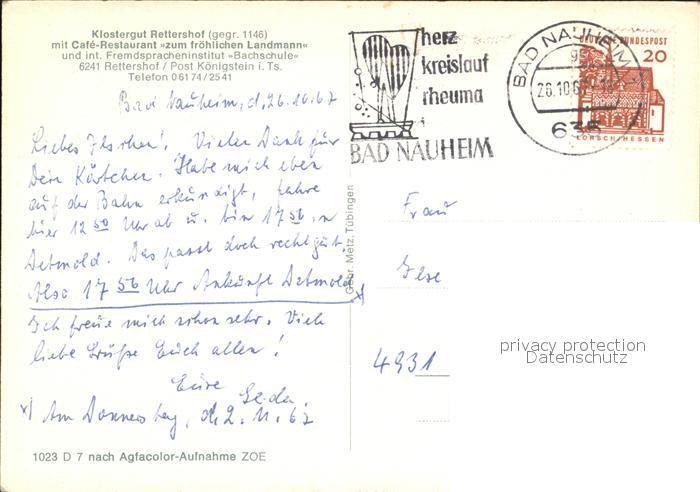 Klostergut Rettershof (gegr. 1146)
mit Café-Restaurant »zum fröhlichen Landmann«
und int. Fremdspracheninstitut »Bachschule«
6241 Rettershof / Post Königstein i. Ts.
Telefon 0 61 74 / 25 41
Bad Nauheim, d. 26.10.67
Liebes Ilschen! Vielen Dank für
Dein Kärtchen. Habe mich eben
auf der Bahn erkundigt, fahre
hier 12 50 Uhr ab u. bin 17 56 in
Detmold. Das passt doch recht gut
Also 17 56 Uhr Ankunft Detmold x)
Ich freue mich schon sehr. Viele
liebe Grüße Euch allen!
Eure
Gerda.
x) Am Donnerstag, d. 2.11.67
1023 D 7 nach Agfacolor-Aufnahme ZOE
Gebr. Metz, Tübingen
herz
kreislauf
rheuma
BAD NAUHEIM
BAD NAUHEIM
26.10.67
635
DEUTSCHE BUNDESPOST
20
LORSCH/HESSEN
Frau
Ilse
4931
privacy protection
Datenschutz